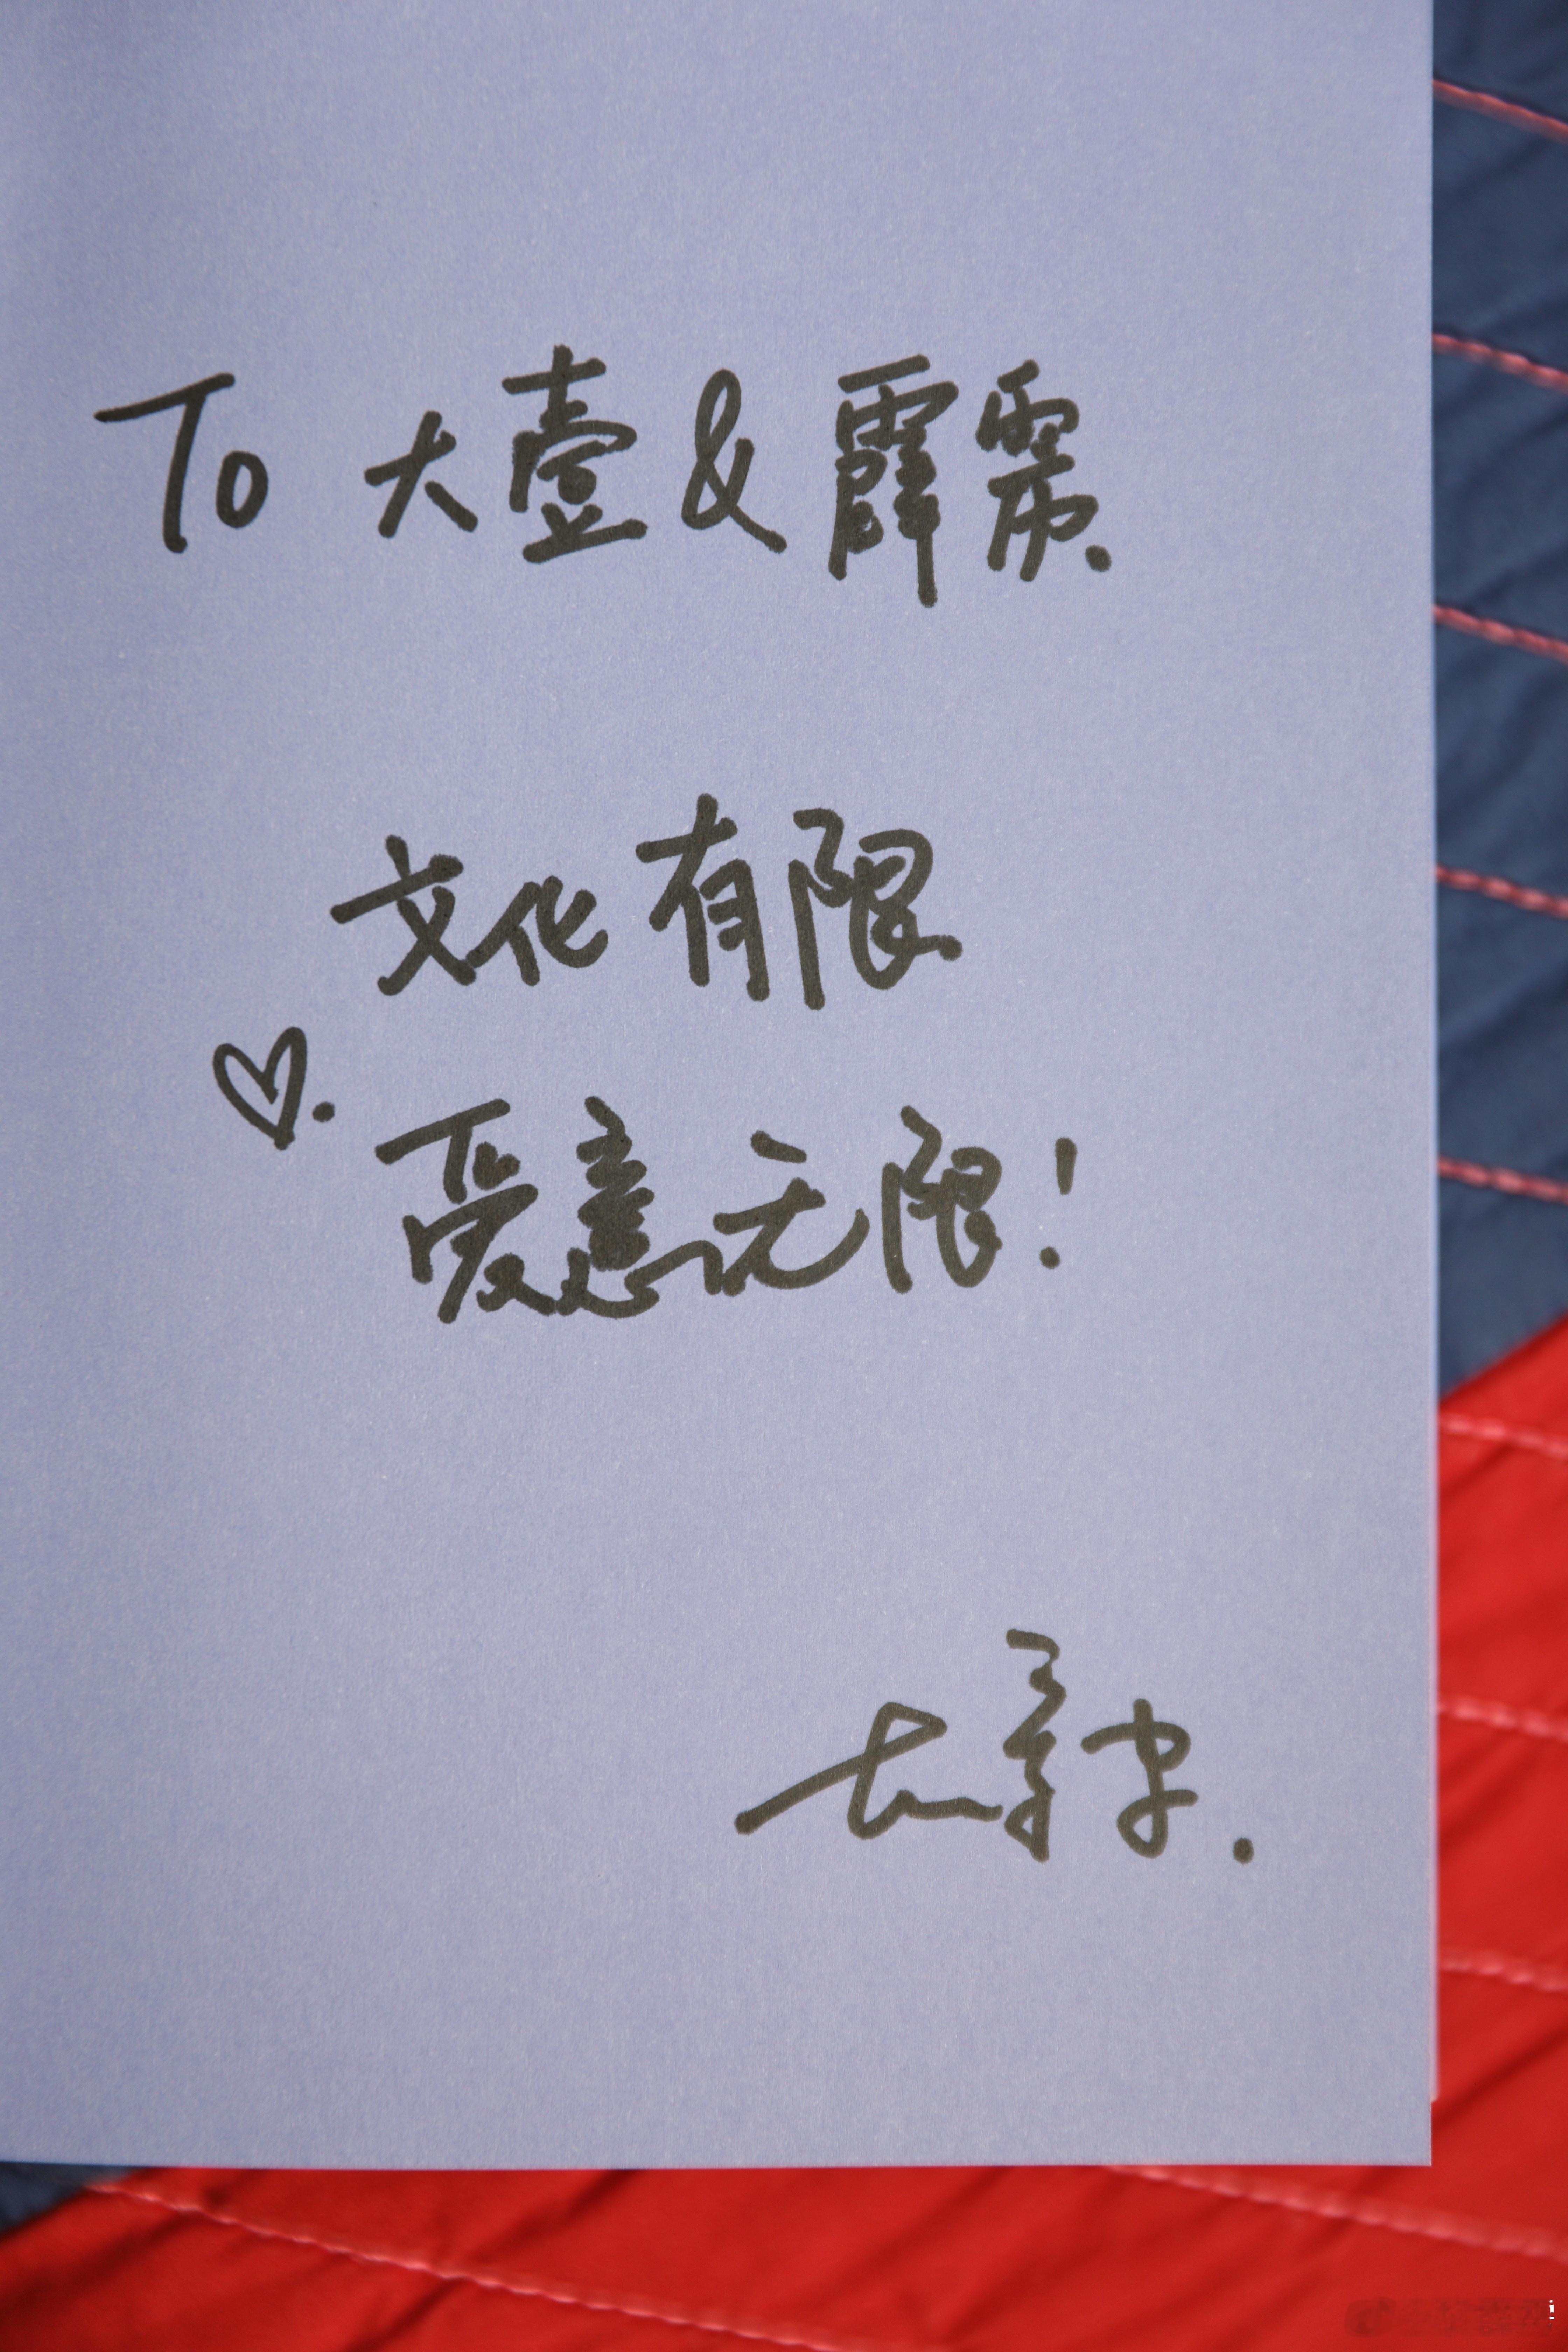 To 大壹&霹雳
文化有限
♡.
爱意无限!